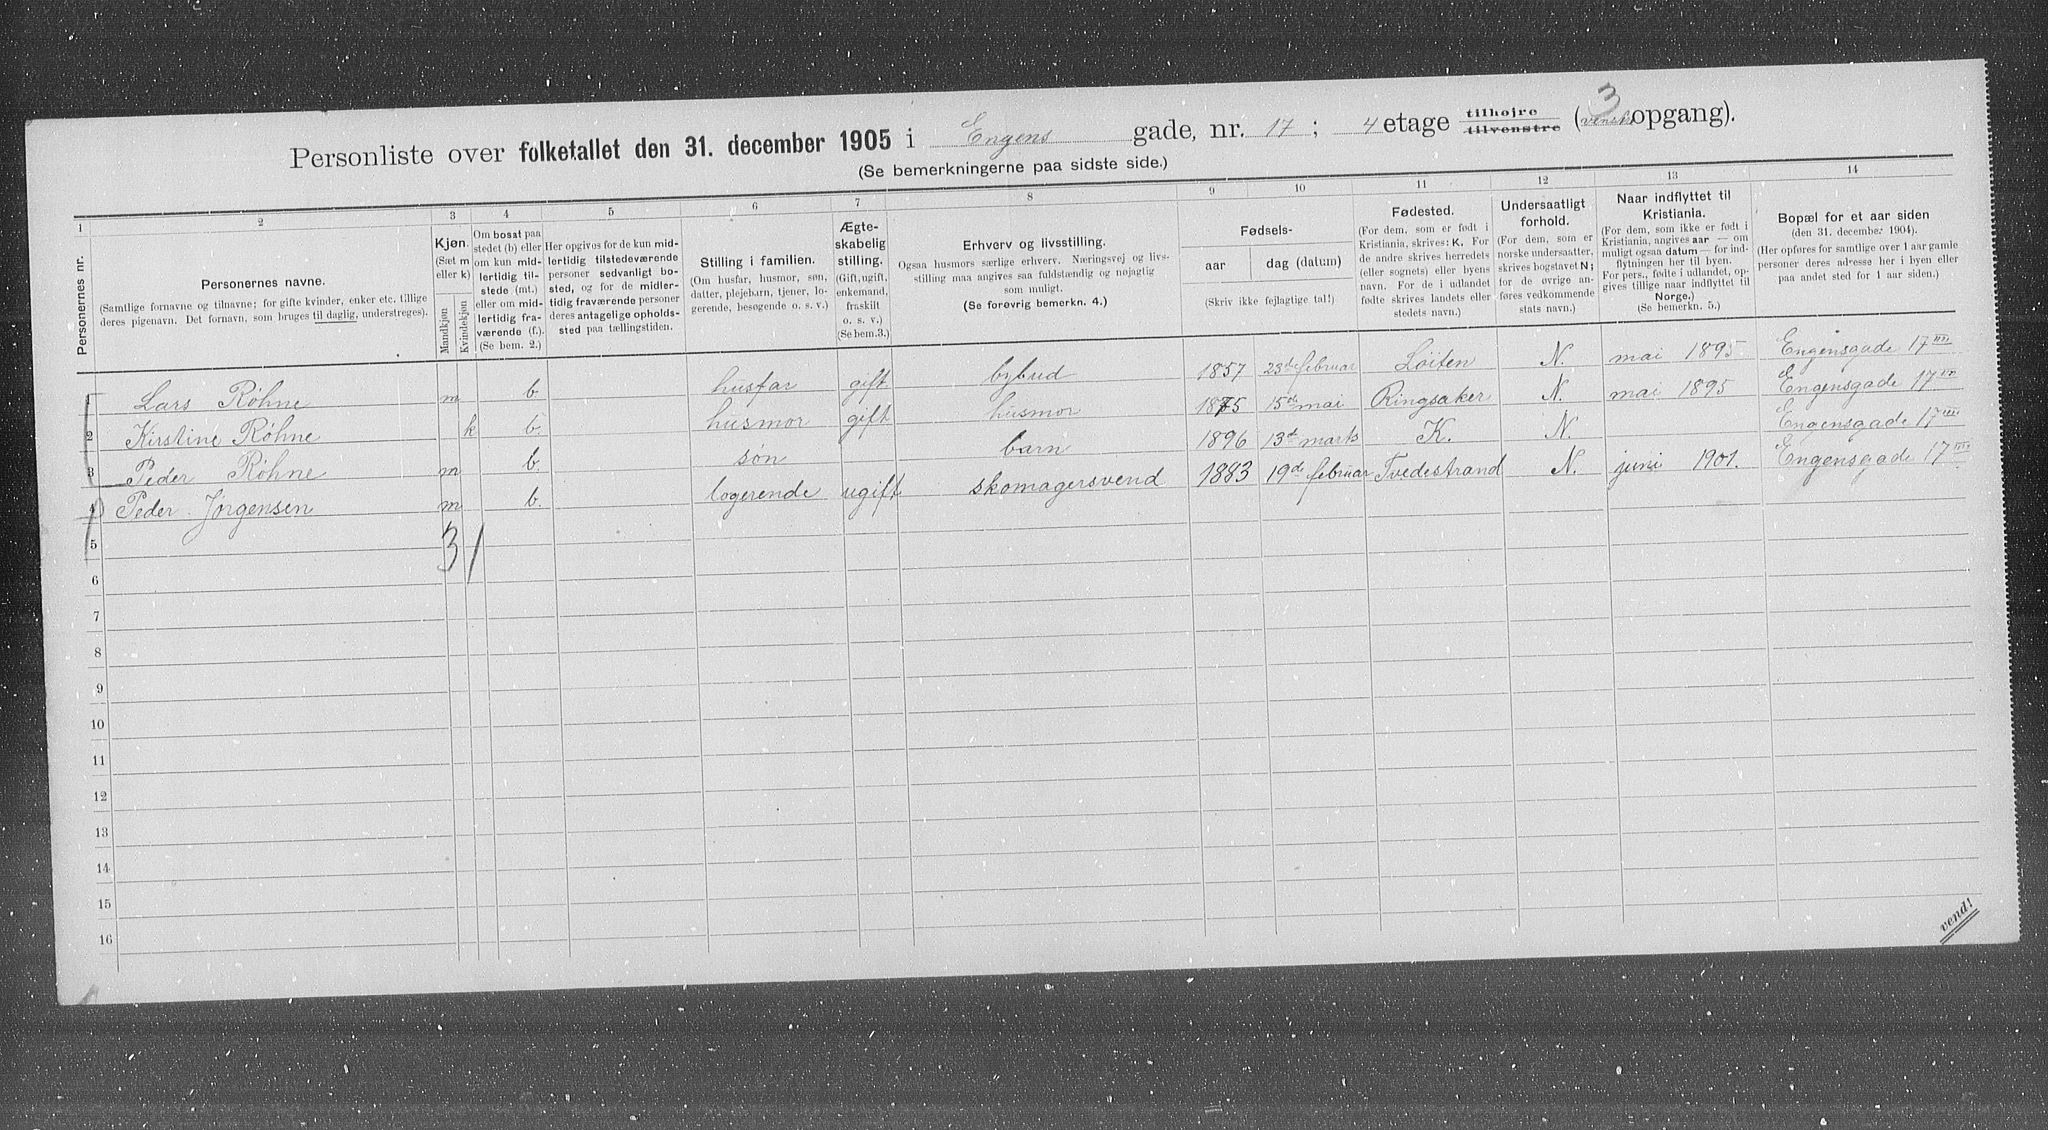 Personliste over folketallet den 31. december 1905 i Engens gade, nr. 17; 4 etage tilhøjre tilvenstre (venstre opgang).
3
(Se bemerkningerne paa sidste side.)
1 2 3 4 5 6 7 8 9 10 11 12 13 14
Personernes nr.
Personernes navne.
(Samtlige fornavne og tilnavne; for gifte kvinder, enker etc. tillige
deres pigenavn. Det fornavn, som bruges til daglig, understreges).
Kjøn.
(Sæt m
eller k)
Mandkjøn
Kvindekjøn
Om bosat paa
stedet (b) eller
om kun mid-
lertidig til-
stede (mt.)
eller om mid-
lertidig fra-
værende (f.).
(Se bem. 2.)
Her opgives for de kun mid-
lertidig tilstedeværende
personer sedvanligt bo-
sted, og for de midler-
tidig fraværende personer
deres antagelige opholds-
sted paa tællingstiden.
Stilling i familien.
(Om husfar, husmor, søn,
datter, plejebarn, tjener, lo-
gerende, besøgende o. s. v.)
Ægte-
skabelig
stilling.
(Gift, ugift,
enkemand,
fraskilt
o. s. v.)
(Se bem.3.)
Erhverv og livsstilling.
Ogsaa husmors særlige erhverv. Næringsvej og livs-
stilling maa angives saa fuldstændig og nøjagtig
som muligt.
(Se forøvrig bemerkn. 4.)
Fødsels-
aar
dag (datum)
(Skriv ikke fejlagtige tal!)
Fødested.
(For dem, som er født i
Kristiania, skrives: K. For
de andre skrives herredets
(eller sognets) eller byens
navn. For de i udlandet
fødte skrives landets eller
stedets navn.)
Undersaatligt
forhold.
(For dem, som er
norske undersaatter,
skrives bogstavet N;
for de øvrige an-
føres vedkommende
stats navn.)
Naar indflyttet til
Kristiania.
(For dem, som ikke er født i
Kristiania, angives aar — om
muligt ogsaa datum — for ind-
flytningen her til byen.
For pers., fødte i udlandet, op-
gives tillige naar indflyttet til
Norge.)
(Se bemerkn. 5.)
Bopæl for et aar siden
(den 31. december 1904).
(Her opføres for samtlige over 1 aar gamle
personer deres adresse her i byen eller
paa andet sted for 1 aar siden.)
1 Lars Røhne m b husfar gift bybud 1857 23de februar Löiten N. mai 1895 Engensgade 17 IIII
2 Kirstine Røhne k b. husmor gift husmor 1875 15de mai Ringsaker N. mai 1895 Engensgade 17 IIII
3 Peder Røhne m b. søn barn 1896 13d marts K. N. Engensgade 17 IIII
4 Peder Jørgensen m b. logerende ugift skomagersvend 1883 19de februar Tvedestrand N. juni 1901. Engensgade 17 IIII
5 3 1
6
7
8
9
10
11
12
13
14
15
16
vend!